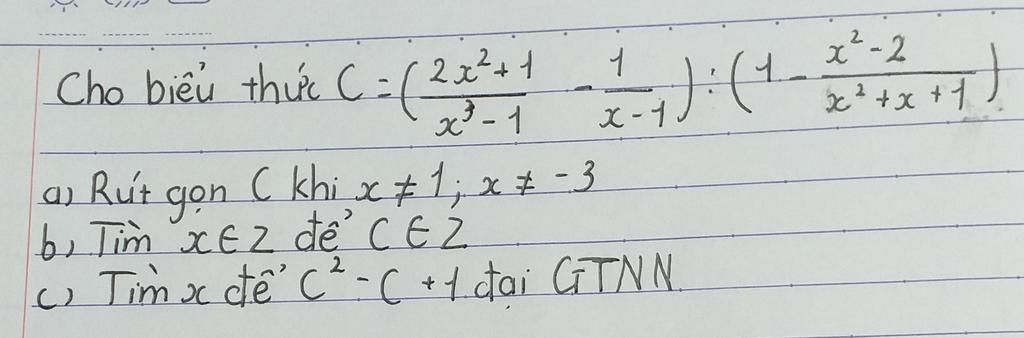 Cho biểu thức C = (\frac{2x^2+1}{x^3-1} - \frac{1}{x-1}) : (1 - \frac{x^2-2}{x^2+x+1})
a) Rút gọn C khi x ≠ 1; x ≠ -3
b) Tìm x ∈ Z để C ∈ Z
c) Tìm x để C² - C + 1 đại GTNN